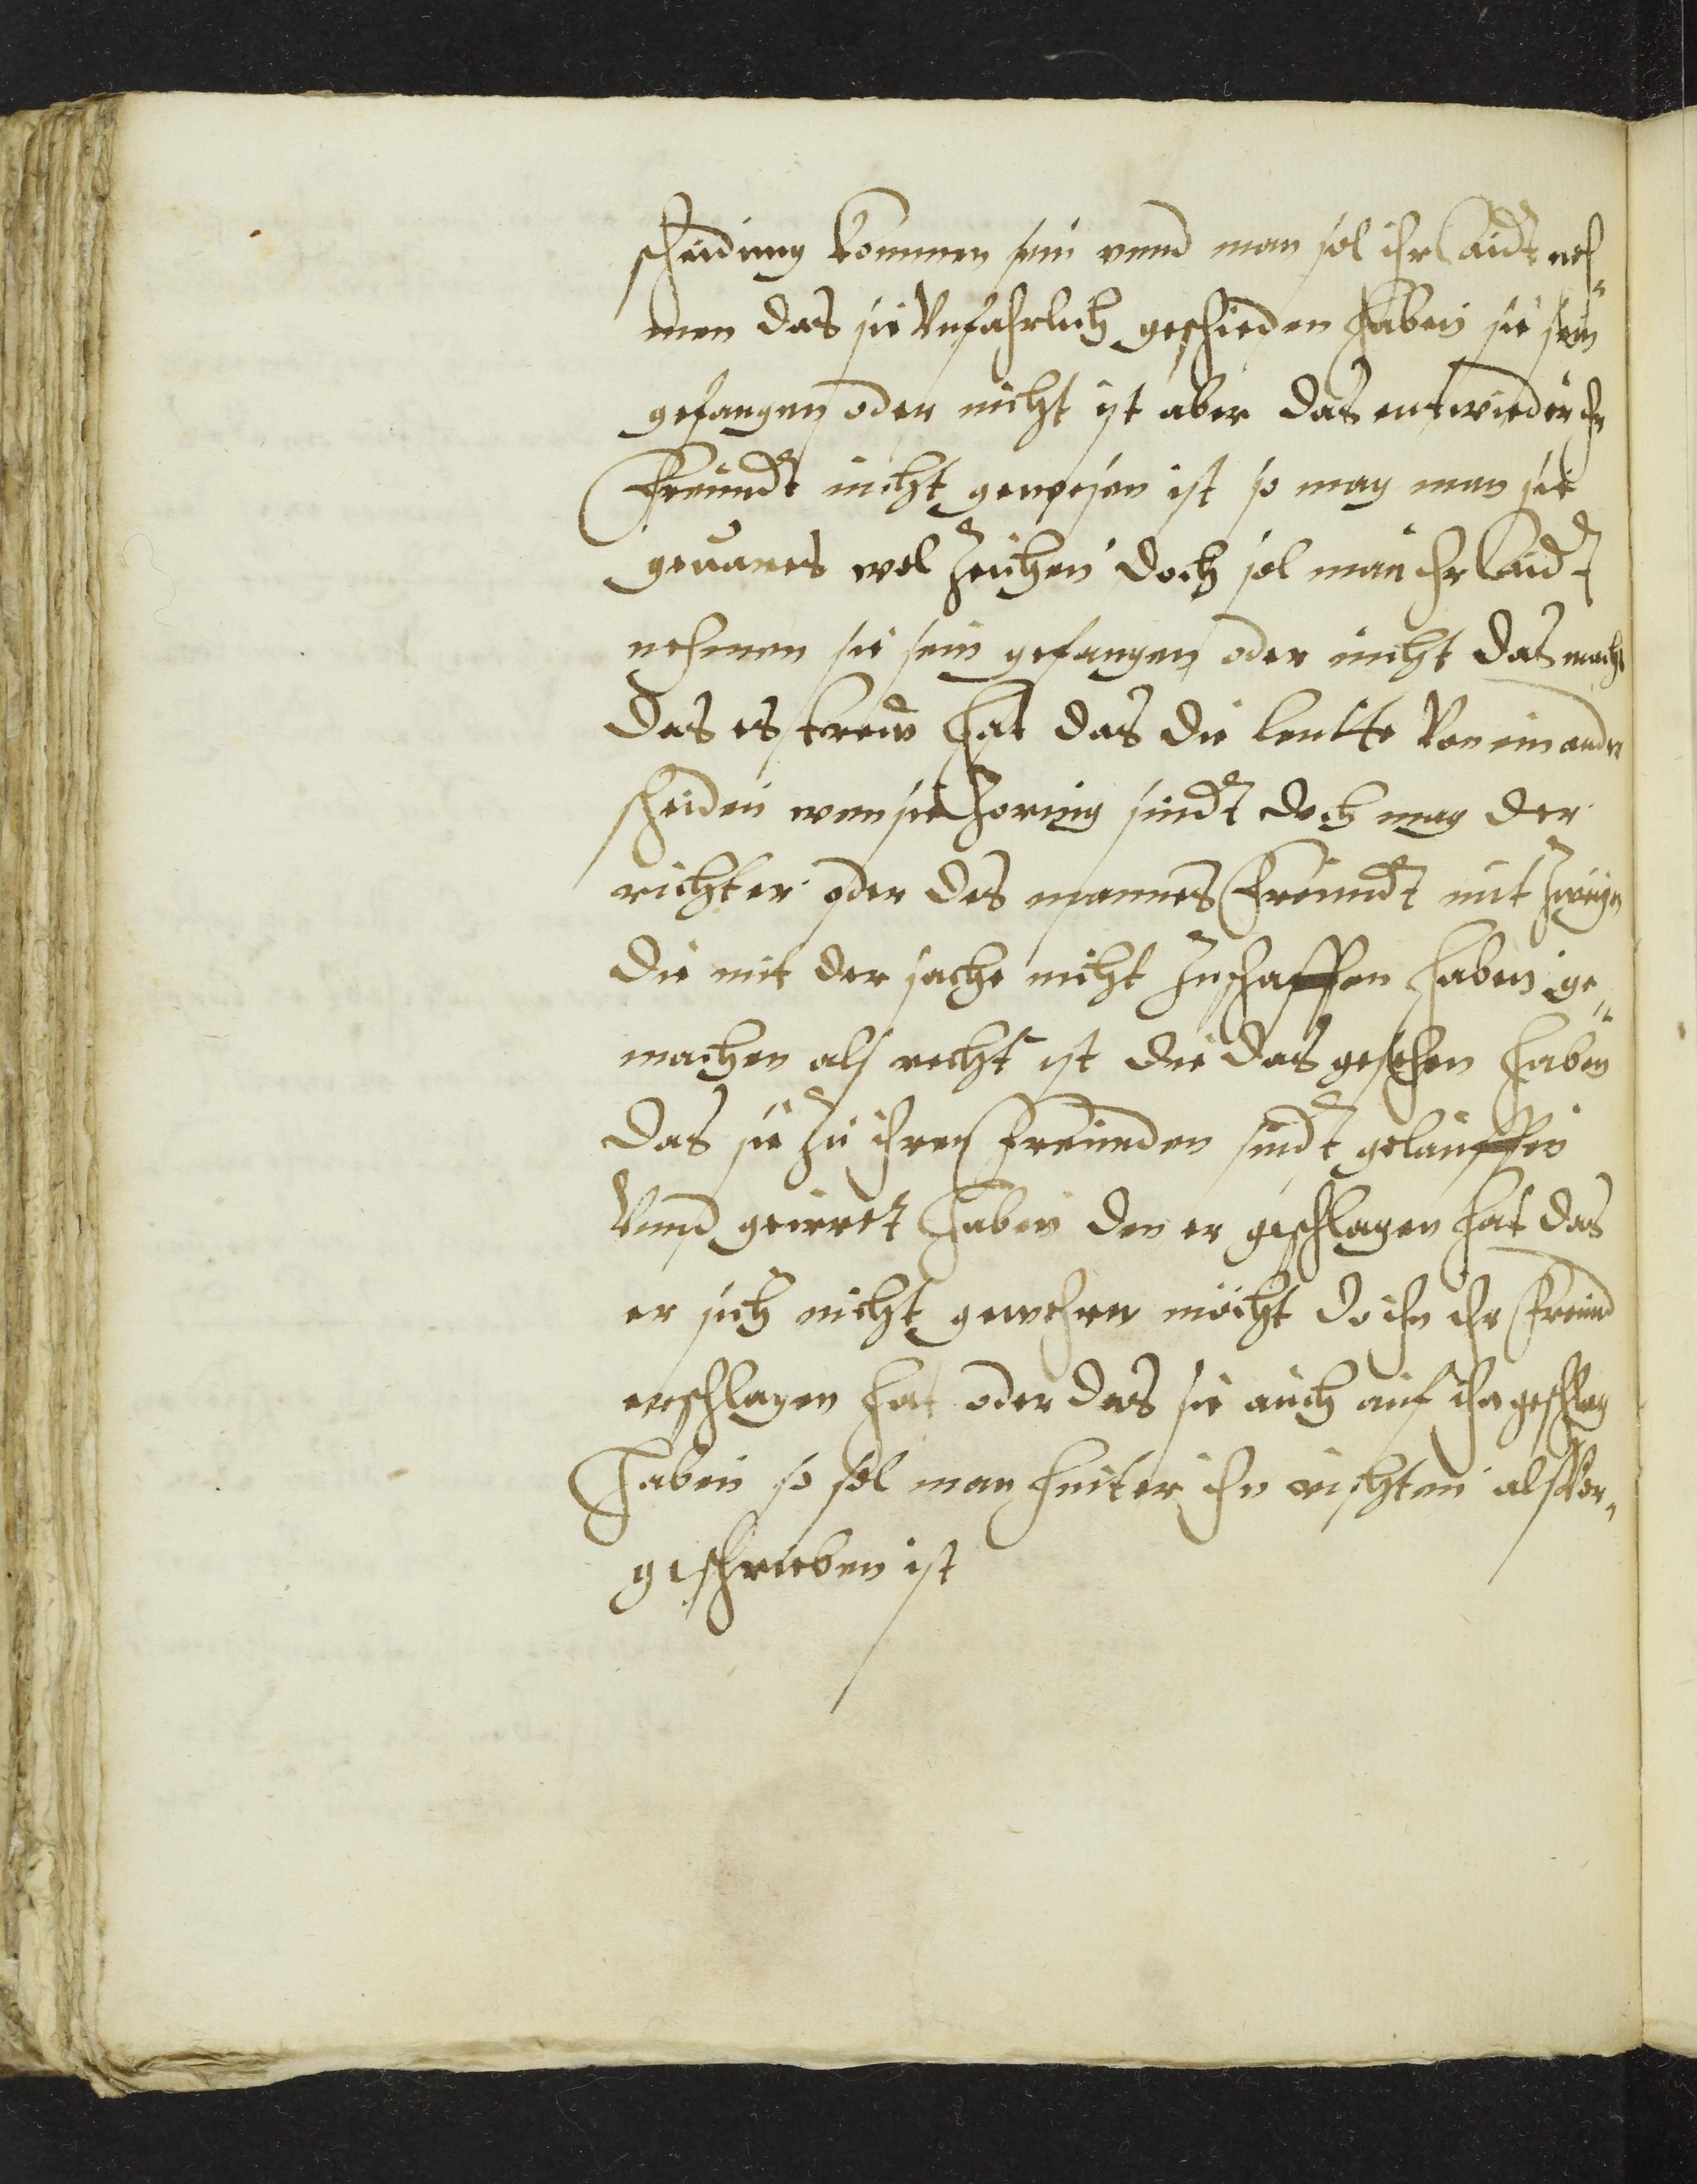 scheidung kommen sein vnnd man sol ihr aidt neh¬
men das sie Vnfahrlich geschieden haben sie sein
gefangen oder nicht ist aber das entwieder ihr
Freundt nicht gewesen ist so mag man sie
geuares wol zeichen doch sol man ihr aidt
nehmen sie sein gefangen oder nicht das macht
das es trew hat das die leutte Von einander
scheiden wen sie zornig sindt doch mag der
richter oder des mannes Freundt mit zweyen
die mit der sache nicht Zuschaffen haben ge¬
machen als recht ist die das gesehen haben
das sie Zu ihren Freunden sindt gelauffen
Vnnd geirret haben den er geschlagen hat das
er sich nicht gewehren möcht do ihn ihr Freund
erschlagen hat oder das sie auch auf ihn geschlag
haben so sol man hinter ihn richten als Vor¬
geschrieben ist